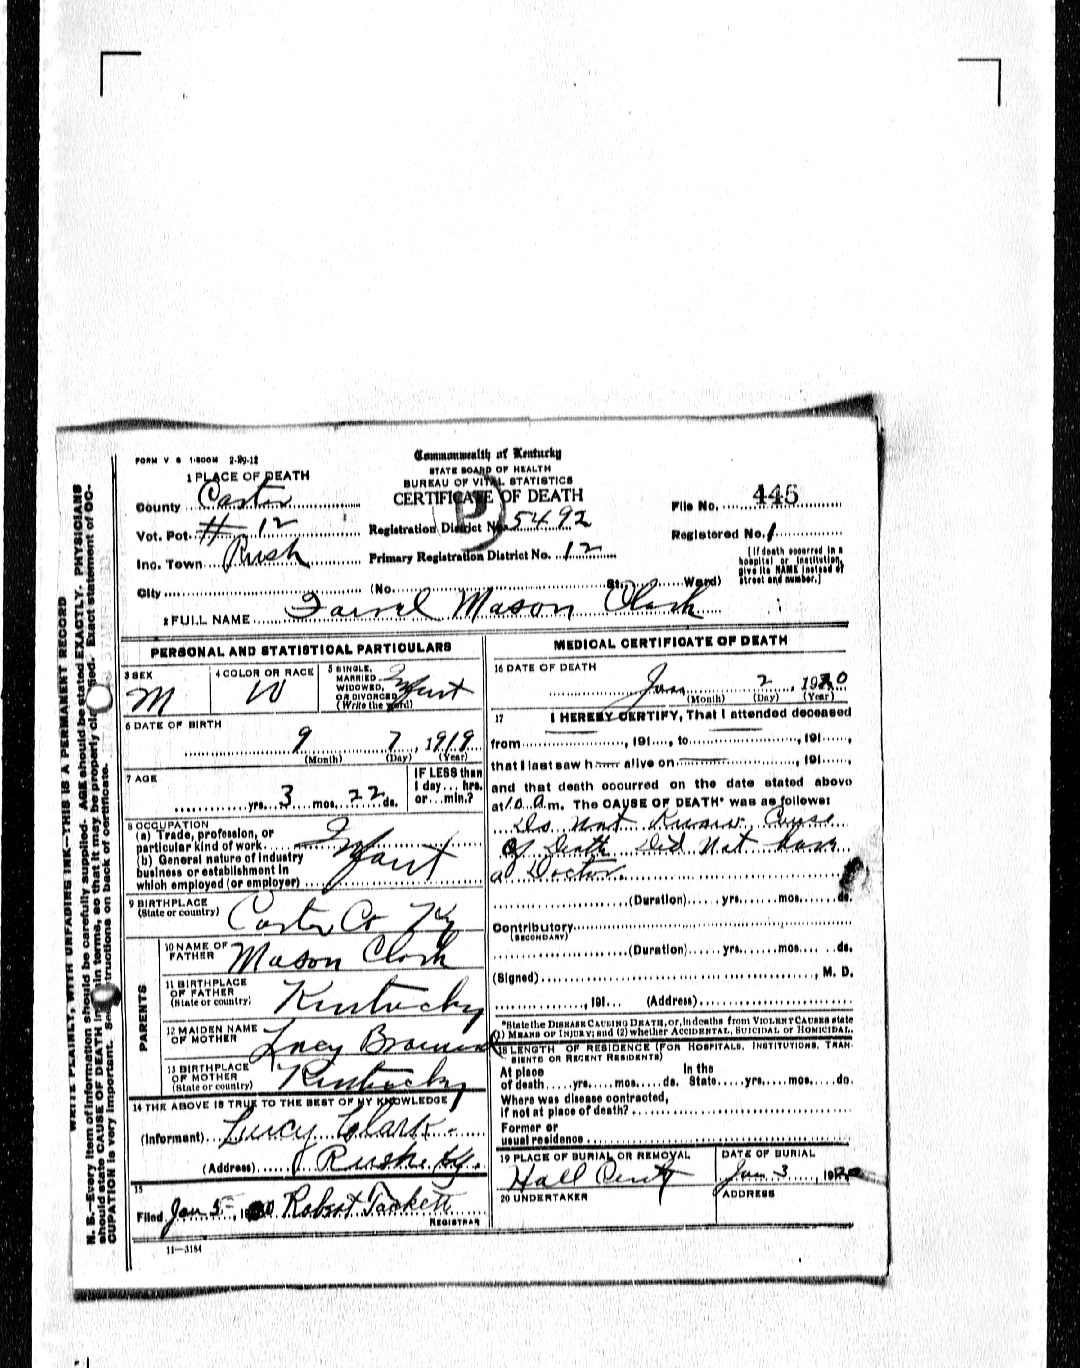 FORM V S 1-500M 2-29-12
Commonwealth of Kentucky
STATE BOARD OF HEALTH
BUREAU OF VITAL STATISTICS
CERTIFICATE OF DEATH
1 PLACE OF DEATH
County Carter
Vot. Pct. # 12
Inc. Town Rush
City (No. St. Ward)
Registration District No. 5492
Primary Registration District No. 12
File No. 445
Registered No. 1
[If death occurred in a
hospital or institution,
give its NAME instead of
street and number.]
2 FULL NAME Mason Clark
PERSONAL AND STATISTICAL PARTICULARS
3 SEX
M
4 COLOR OR RACE
W
5 SINGLE,
MARRIED
WIDOWED,
OR DIVORCED
(Write the word)
Infant
6 DATE OF BIRTH
9 7, 1919
(Month) (Day) (Year)
7 AGE
yrs. 3 mos. 22 ds.
IF LESS than
1 day... hrs.
or... min.?
8 OCCUPATION
(a) Trade, profession, or
particular kind of work
(b) General nature of industry
business or establishment in
which employed (or employer)
Infant
9 BIRTHPLACE
(State or country)
Carter Co Ky
PARENTS
10 NAME OF
FATHER
Mason Clark
11 BIRTHPLACE
OF FATHER
(State or country)
Kentucky
12 MAIDEN NAME
OF MOTHER
Lucy
13 BIRTHPLACE
OF MOTHER
(State or country)
Kentucky
14 THE ABOVE IS TRUE TO THE BEST OF MY KNOWLEDGE
(Informant) Lucy Clark
(Address) Rush Ky.
15
Filed Jan 5, Robert Tackett
REGISTRAR
11-3184
MEDICAL CERTIFICATE OF DEATH
16 DATE OF DEATH
Jan 2, 1920
(Month) (Day) (Year)
17 I HEREBY CERTIFY, That I attended deceased
from , 191 , to , 191 ,
that I last saw h alive on , 191 ,
and that death occurred on the date stated above
at 10 a.m. The CAUSE OF DEATH* was as follows:
Do Not Know Cause
of Death Did Not have
a Doctor.
(Duration) yrs. mos. ds.
Contributory
(SECONDARY)
(Duration) yrs. mos. ds.
(Signed) , M. D.
, 191 (Address)
*State the DISEASE CAUSING DEATH, or, in deaths from VIOLENT CAUSES state
(1) MEANS OF INJURY; and (2) whether ACCIDENTAL, SUICIDAL or HOMICIDAL.
18 LENGTH OF RESIDENCE (FOR HOSPITALS, INSTITUTIONS, TRAN-
SIENTS OR RECENT RESIDENTS)
At place In the
of death yrs. mos. ds. State yrs. mos. ds.
Where was disease contracted,
if not at place of death?
Former or
usual residence
19 PLACE OF BURIAL OR REMOVAL
Hall
DATE OF BURIAL
Jan 3, 1920
20 UNDERTAKER
ADDRESS
WRITE PLAINLY, WITH UNFADING INK—THIS IS A PERMANENT RECORD
N. B.—Every item of information should be carefully supplied. AGE should be stated EXACTLY. PHYSICIANS
should state CAUSE OF DEATH in plain terms, so that it may be properly classified. Exact statement of OC-
CUPATION is very important. See instructions on back of certificate.